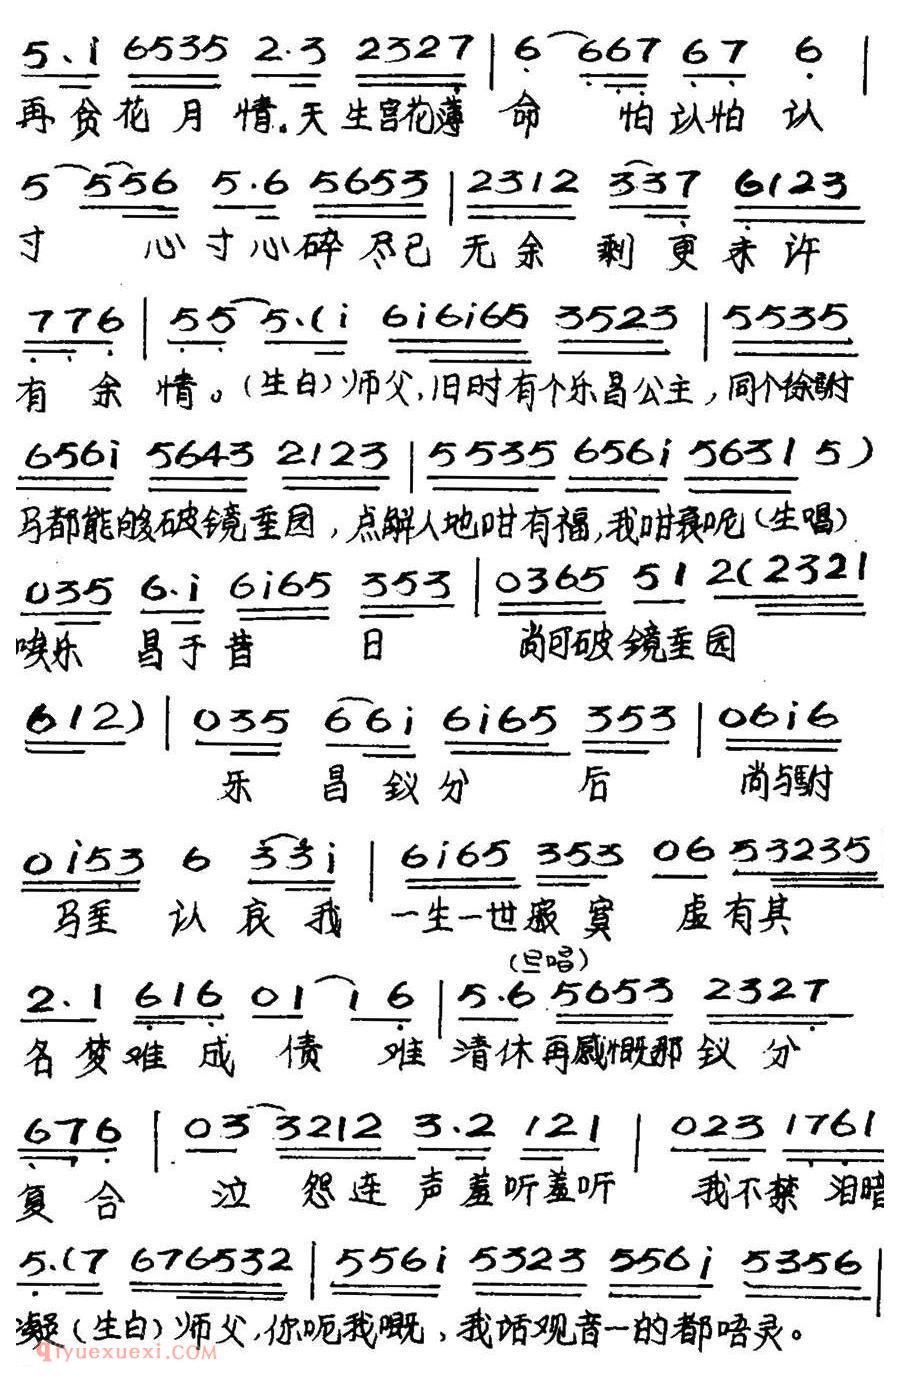 5·i 6535 2·3 2327 | 6 667 67 6 |
再贪花月情。天生宫花薄命 怕认怕认
5 556 5·6 5653 | 2312 337 6123
寸 心寸心碎尽已无余剩更未许
776 | 55 5·(i 6i6i65 3523 | 5535
有余情。(生白)师父,旧时有个乐昌公主,同个徐駙
656i 5643 2123 | 5535 656i 5631 5)
马都能够破镜重园,点解人地咁有福,我咁衰呢(生唱)
035 6·i 6i65 353 | 0365 51 2(2321
唉乐昌于昔日 尚可破镜重园
612) | 035 66i 6i65 353 | 06i6
乐昌钗分后 尚与駙
0i53 6 33i | 6i65 353 06 53235
马重认哀我一生一世寂寞 虚有其
(旦唱)
2·1 616 01 16 | 5·6 5653 2327
名梦难成债难清休再感慨那钗分
676 | 03 3212 3·2 121 | 023 1761
复合 泣怨连声羞听羞听 我不禁泪暗
5·(7 676532 | 556i 5323 556i 5356 |
凝(生白)师父,你呃我嘅,我话观音一的都唔灵。
qiyuexuexi.com